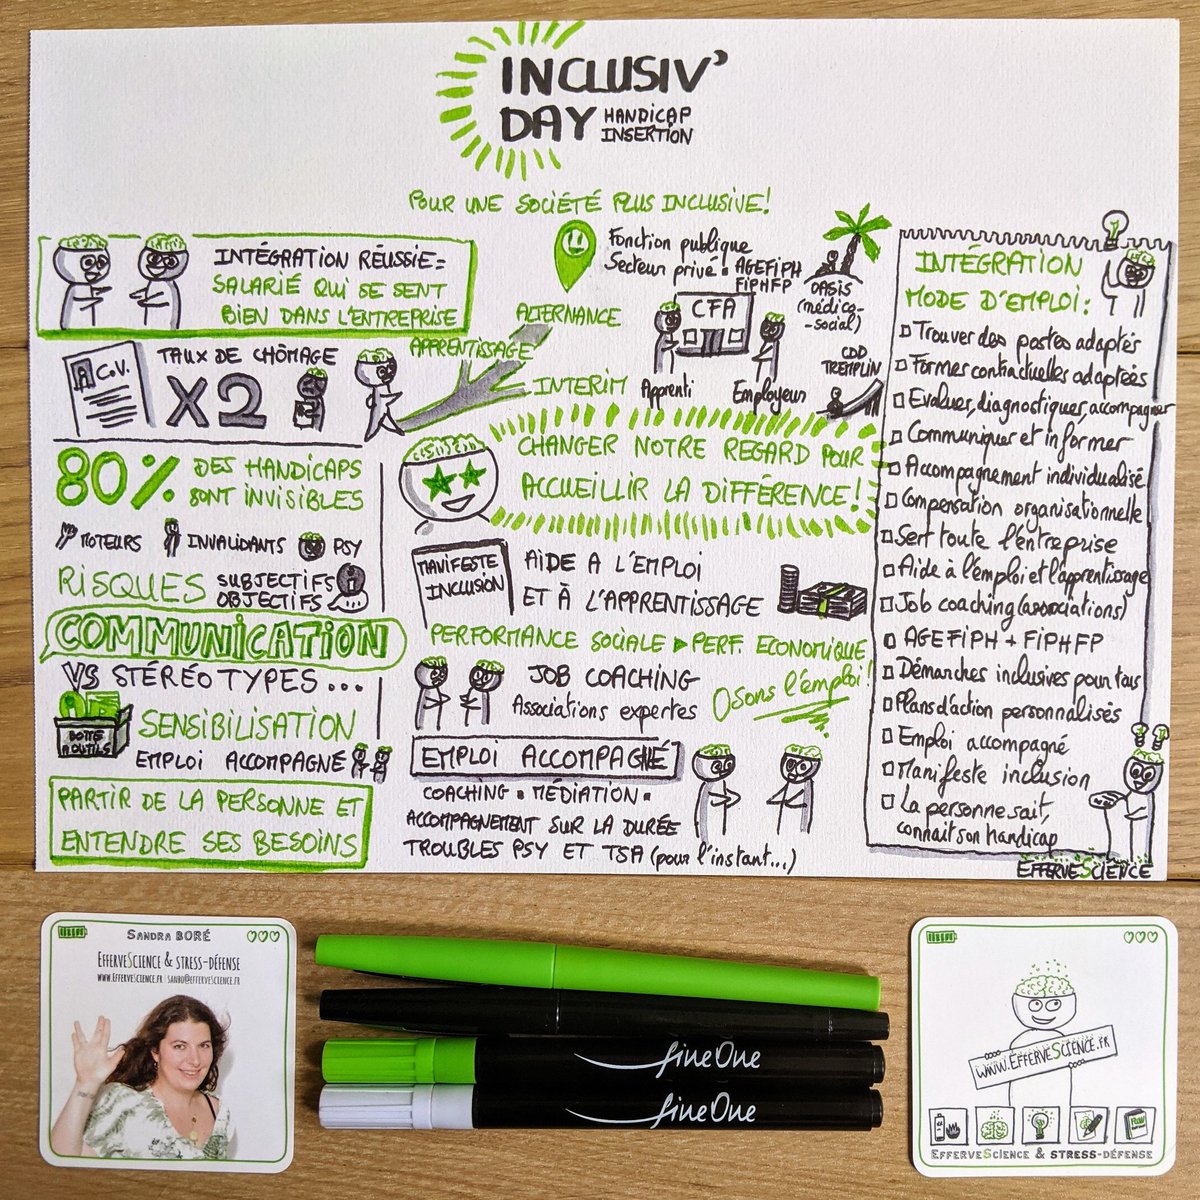 INCLUSIV'
DAY HANDICAP
INSERTION
POUR UNE SOCIÉTÉ PLUS INCLUSIVE!
INTÉGRATION RÉUSSIE =
SALARIÉ QUI SE SENT
BIEN DANS L'ENTREPRISE
C.V.
TAUX DE CHÔMAGE
X2
APPRENTISSAGE
ALTERNANCE
INTERIM
Fonction publique
Secteur privé
AGEFIPH
FIPHFP
OASIS
(médico-
-social)
CFA
Apprenti
Employeur
CDD
TREMPLIN
80% DES HANDICAPS
SONT INVISIBLES
MOTEURS
INVALIDANTS
PSY
RISQUES SUBJECTIFS
OBJECTIFS
COMMUNICATION
VS STÉRÉOTYPES...
BOITE
A OUTILS
SENSIBILISATION
EMPLOI ACCOMPAGNÉ
PARTIR DE LA PERSONNE ET
ENTENDRE SES BESOINS
CHANGER NOTRE REGARD POUR
ACCUEILLIR LA DIFFÉRENCE!
MANIFESTE
INCLUSION
AIDE A L'EMPLOI
ET À L'APPRENTISSAGE
PERFORMANCE SOCIALE ▶ PERF. ECONOMIQUE
JOB COACHING
Associations expertes
Osons l'emploi!
EMPLOI ACCOMPAGNÉ
COACHING • MÉDIATION •
ACCOMPAGNEMENT SUR LA DURÉE
TROUBLES PSY ET TSA (pour l'instant...)
INTÉGRATION
MODE D'EMPLOI:
Trouver des postes adaptés
Formes contractuelles adaptées
Evaluer, diagnostiquer, accompagner
Communiquer et informer
Accompagnement individualisé
Compensation organisationnelle
Sert toute l'entreprise
Aide à l'emploi et l'apprentissage
Job coaching (associations)
AGEFIPH + FIPHFP
Démarches inclusives pour tous
Plans d'action personnalisés
Emploi accompagné
Manifeste inclusion
La personne sait,
connait son handicap
EFFERVESCIENCE
SANDRA BORÉ
EFFERVESCIENCE & STRESS-DÉFENSE
WWW.EFFERVESCIENCE.FR | SANBO@EFFERVESCIENCE.FR
fineOne
fineOne
WWW.EFFERVESCIENCE.FR
EFFERVESCIENCE & STRESS-DÉFENSE